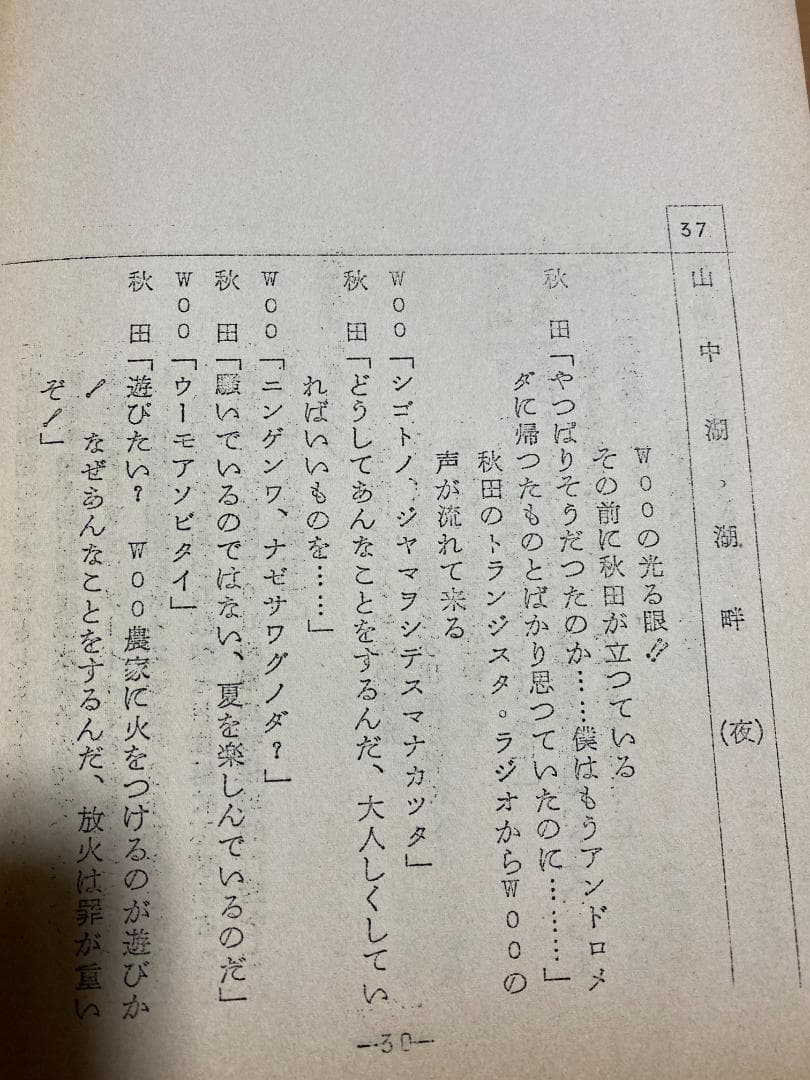 37
山中湖・湖畔(夜)
WOOの光る眼!!
その前に秋田が立つている
秋田「やつぱりそうだつたのか……僕はもうアンドロメ
ダに帰つたものとばかり思つていたのに………」
秋田のトランジスタ・ラジオからWOOの
声が流れて来る
WOO「シゴトノ、ジヤマヲシテスマナカツタ」
秋田「どうしてあんなことをするんだ、大人しくしてい
ればいいものを……」
WOO「ニンゲンワ、ナゼサワグノダ?」
秋田「騒いでいるのではない、夏を楽しんでいるのだ」
WOO「ウーモアソビタイ」
秋田「遊びたい? WOO農家に火をつけるのが遊びか
! なぜあんなことをするんだ、放火は罪が重い
ぞ!」
—30—